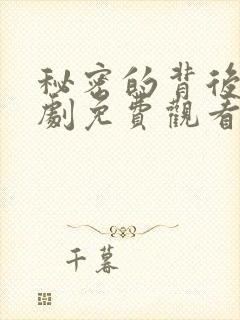 秘密的背後
劇免費觀看
千暮